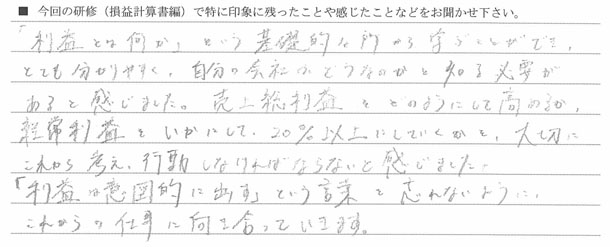 ■ 今回の研修（損益計算書編）で特に印象に残ったことや感じたことなどをお聞かせ下さい。
「利益とは何か」という基礎的な所から学ぶことができ、
とても分かりやすく、自分の会社はどうなのかと知る必要が
あると感じました。売上総利益をどのようにして高めるか、
経常利益をいかにして、20%以上にしていくかを、大切に
これから考え、行動しなければならないと感じました。
「利益は意図的に出す」という言葉を忘れないように、
これからの仕事に向き合っていきます。